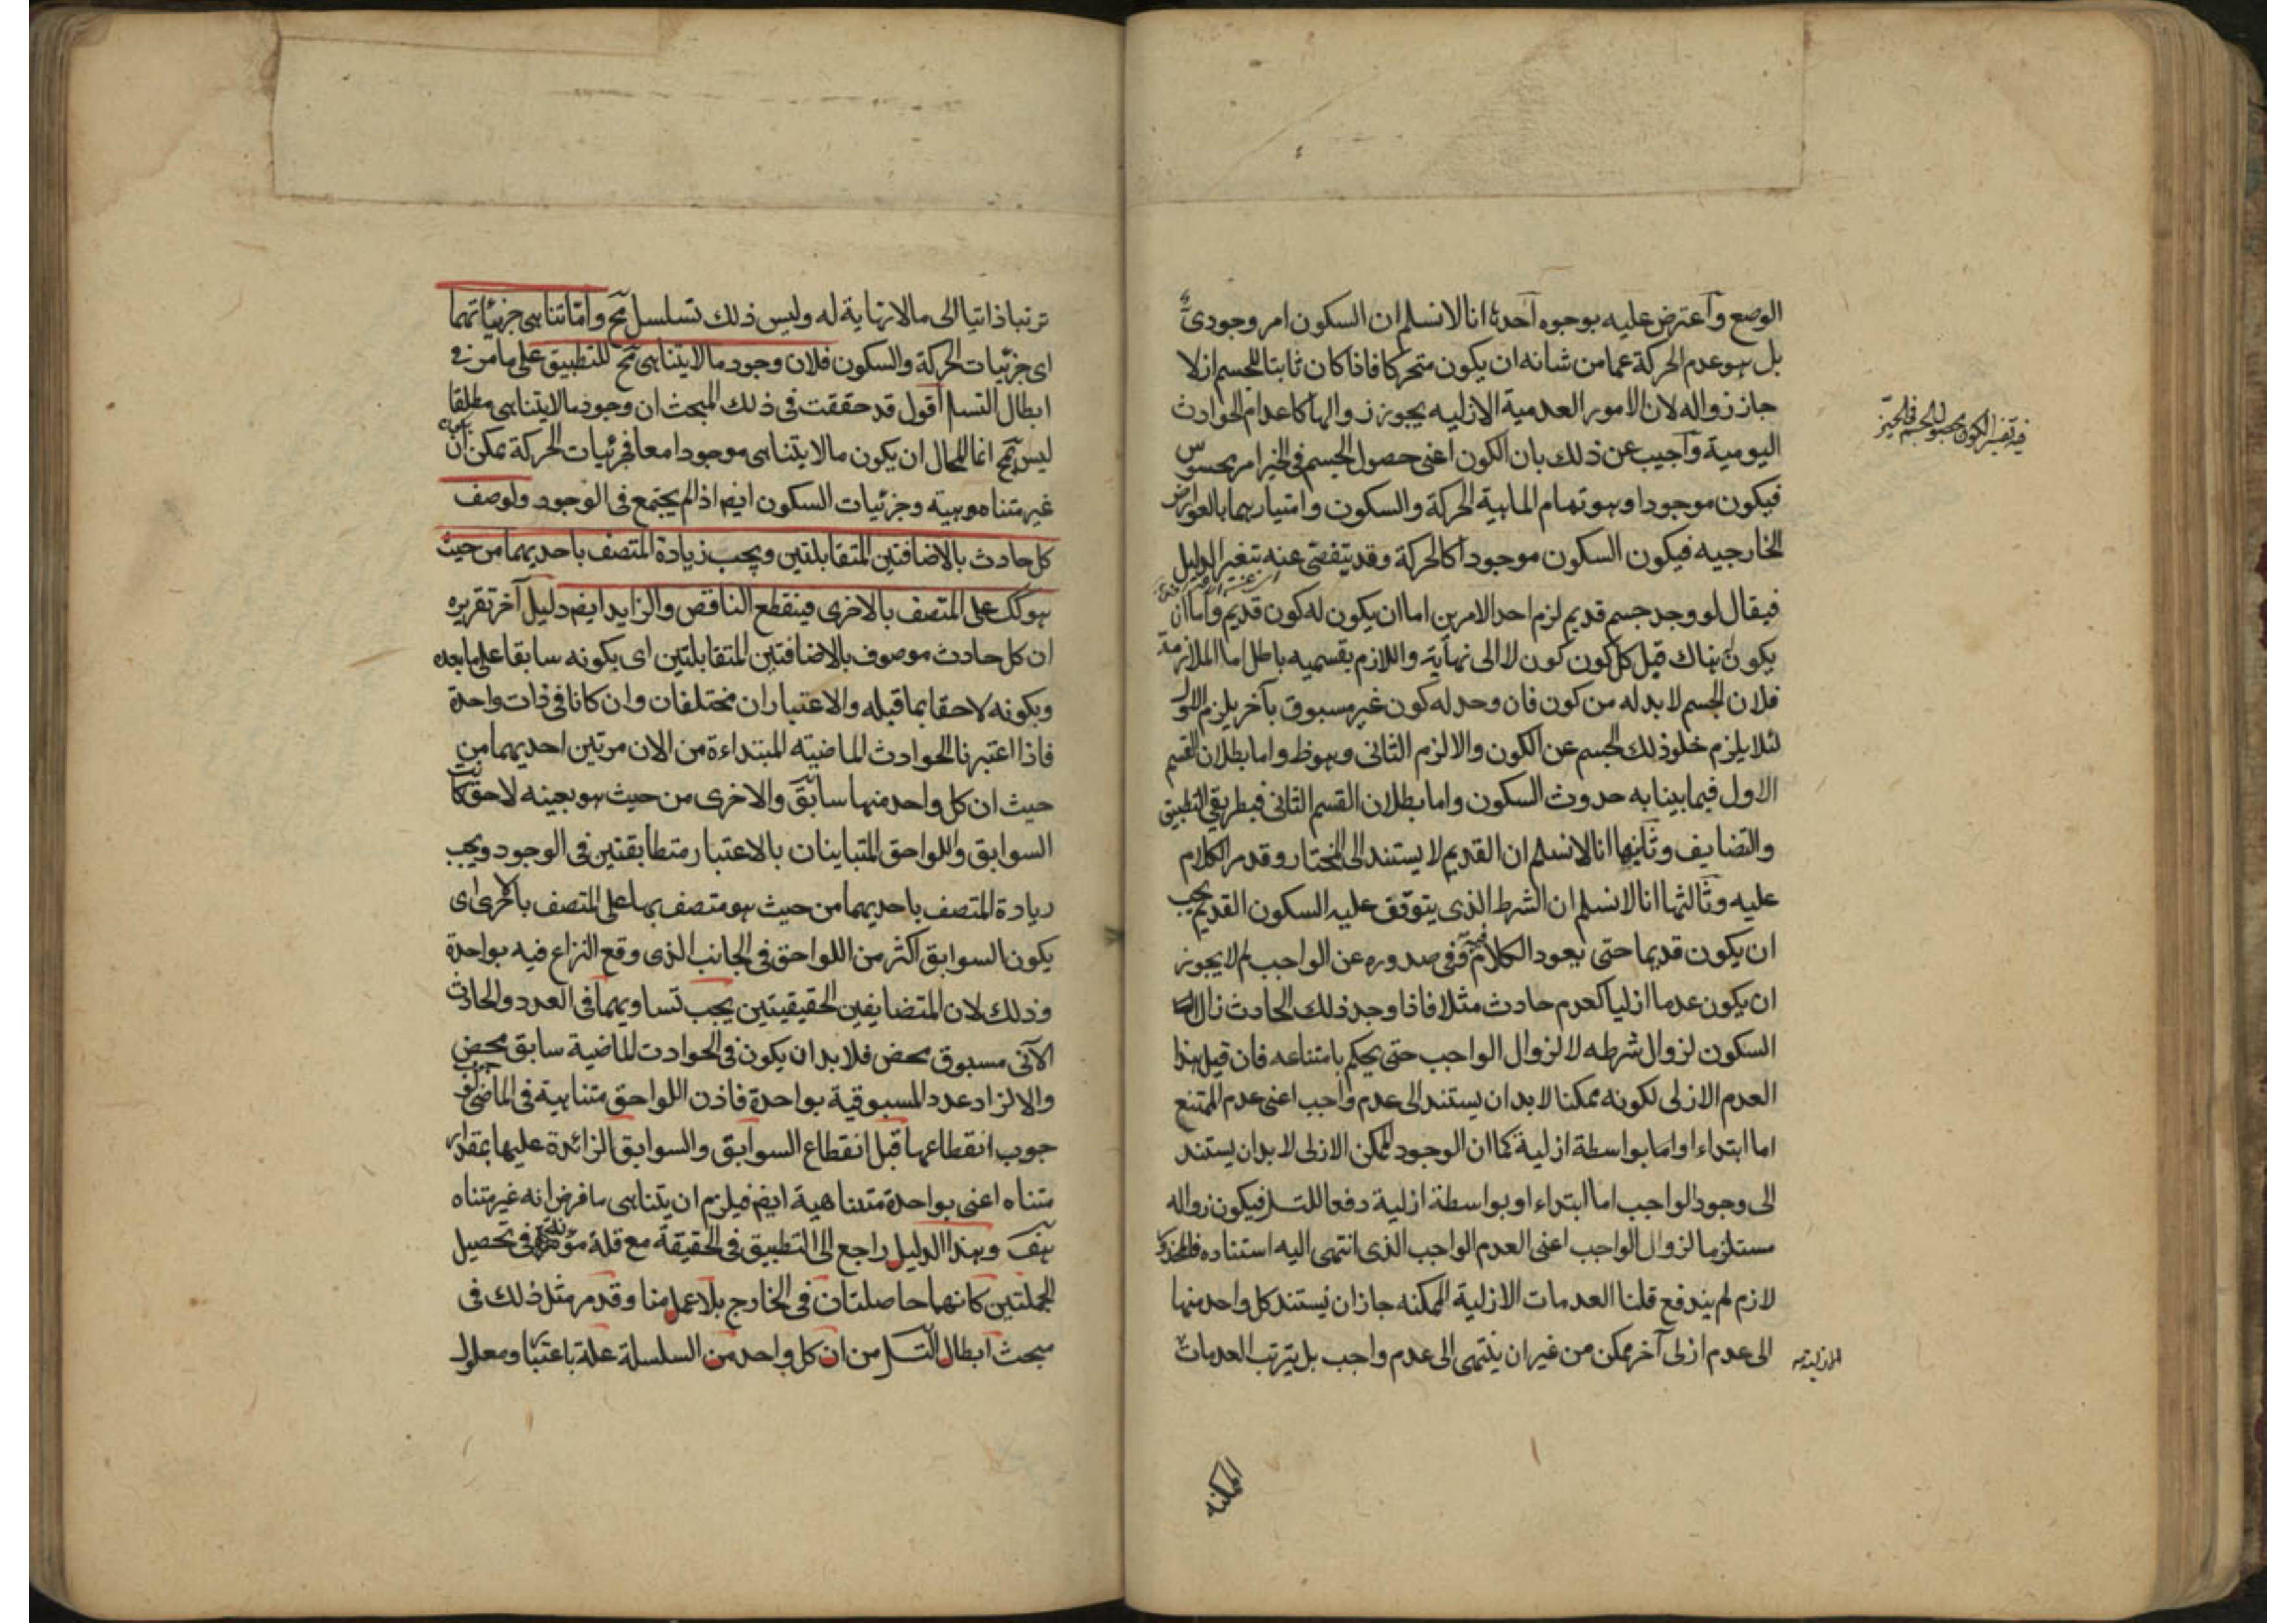 الوضع واعترض عليه بوجوه احدها انا لا نسلم ان السكون امر وجودى
بل هو عدم الحركة عما من شانه ان يكون متحركا فاذا كان ثابتا للجسم ازلا
جاز زواله لان الامور العدمية الازليه يجوز زوالها كاعدام الحوادث
اليومية واجيب عن ذلك بان الكون اعنى حصول الجسم فى الحيز امر محسوس
فيكون موجودا وهو تمام الماهية الحركة والسكون وامتيازهما بالعوارض
الخارجيه فيكون السكون موجودا كالحركة وقد يتفصى عنه بتغير الدليل
فيقال لو وجد جسم قديم لزم احد الامرين اما ان يكون له كون قديم واما ان
يكون هناك قبل كل كون كون لا الى نهاية واللازم بقسميه باطل اما الملازمة
فلان الجسم لا بد له من كون فان وجد له كون غير مسبوق بآخر يلزم الاول
لئلا يلزم خلو ذلك الجسم عن الكون والا لزم الثانى وهو ظ واما بطلان القسم
الاول فيما بينا به حدوث السكون واما بطلان القسم الثانى فبطريقي التطبيق
والتضايف وثانيها انا لا نسلم ان القديم لا يستند الى المختار وقد مر الكلام
عليه وثالثها انا لا نسلم ان الشرط الذى يتوقف عليه السكون القديم يجب
ان يكون قديما حتى يعود الكلام فيه وفى صدوره عن الواجب لم لا يجوز
ان يكون عدما ازليا كعدم حادث مثلا فاذا وجد ذلك الحادث زال
السكون لزوال شرطه لا لزوال الواجب حتى يحكم بامتناعه فان قيل هذا
العدم الازلى لكونه ممكنا لا بد ان يستند الى عدم واجب اعنى عدم الممتنع
اما ابتداء او اما بواسطة ازلية كما ان الوجود الممكن الازلى لا بد ان يستند
الى وجود الواجب اما ابتداء او بواسطة ازلية دفعا للتسـ فيكون زواله
مستلزما لزوال الواجب اعنى العدم الواجب الذى انتهى اليه استناده
لازم لم يندفع قلنا العدمات الازلية الممكنه جاز ان يستند كل واحد منها
الى عدم ازلى آخر ممكن من غير ان ينتهى الى عدم واجب بل يترتب العدمات
الممكنه
فيه تفسير الكون بحصول الجسم فى الحيز
الازلية
ترتبا ذاتيا الى ما لا نهاية له وليس ذلك تسلسل مح واما تناهى جزئياتهما
اى جزئيات الحركة والسكون فلان وجود ما لا يتناهى مح للتطبيق على ما مر فى
ابطال التسـ اقول قد حققت فى ذلك المبحث ان وجود ما لا يتناهى مطلقا
ليس بمح انما المحال ان يكون ما لا يتناهى موجودا معا فجزئيات الحركة يمكن ان
غير متناهيه وجزئيات السكون ايضا اذا لم يجتمع فى الوجود ولوصف
كل حادث بالاضافتين المتقابلتين ويجب زيادة المتصف باحديهما من حيث
هو كك على المتصف بالاخرى فينقطع الناقص والزايد ايضا دليل آخر تقريره
ان كل حادث موصوف بالاضافتين المتقابلتين اى بكونه سابقا على ما بعده
وبكونه لاحقا بما قبله والاعتباران مختلفان وان كانا فى ذات واحدة
فاذا اعتبرنا الحوادث الماضيته المبتداءة من الان مرتين احديهما من
حيث ان كل واحد منها سابق والاخرى من حيث هو بعينه لاحق كانت
السوابق واللواحق المتباينان بالاعتبار متطابقتين فى الوجود ويجب
زيادة المتصف باحديهما من حيث هو متصف بها على المتصف بالاخرى اى
يكون السوابق اكثر من اللواحق فى الجانب الذى وقع النزاع فيه بواحدة
وذلك لان المتضايفين الحقيقيتين يجب تساويهما فى العدد والحادث
الآنى مسبوق محض فلا بد ان يكون فى الحوادث الماضية سابق محض
والا لزاد عدد المسبوقية بواحدة فاذن اللواحق متناهية فى الماضى لو
جوب انقطاعها قبل انقطاع السوابق والسوابق الزائدة عليها بمقدار
متناه اعنى بواحدة متناهية ايضا فيلزم ان يتناهى ما فرض انه غير متناه
هف وهذا الدليل راجع الى التطبيق فى الحقيقة مع قلة مؤنة فى تحصيل
الجملتين كانهما حاصلتان فى الخارج بلا عمل منا وقد مر مثل ذلك فى
مبحث ابطال التسـ من ان كل واحد من السلسلة علة باعتبار ومعلول